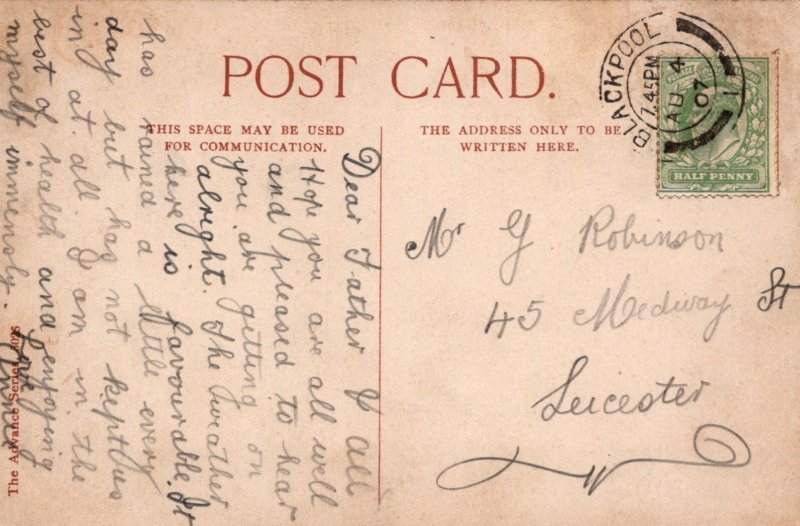 POST CARD.
THIS SPACE MAY BE USED
FOR COMMUNICATION.
THE ADDRESS ONLY TO BE
WRITTEN HERE.
BLACKPOOL
7.45PM
AU 4
07
1
HALF PENNY
Dear Father & All
Hope you are all well
and pleased to hear
you are getting on
alright. The weather
here is favourable. It
has rained a little every
day but has not kept us
in at all. I am in the
best of health and enjoying
myself immensly.
Mr G Robinson
45 Medway St
Leicester
The Advance Series